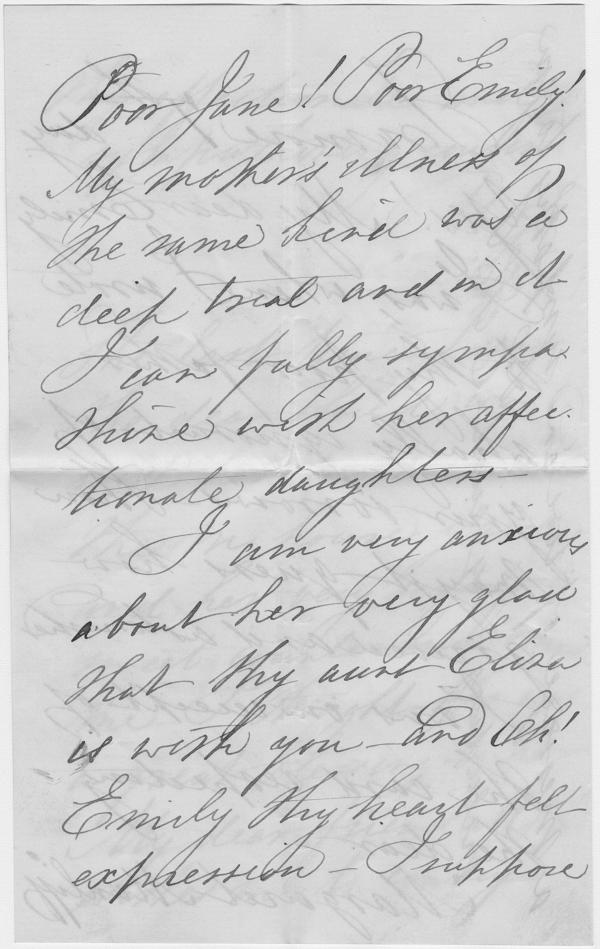 Poor Jane! Poor Emily!
My mother's illness of
the same kind was a
deep trial and in it
I can fully sympa
thize with her affec-
tionate daughters—
I am very anxious
about her very glad
that thy aunt Eliza
is with you—and Oh!
Emily thy heart felt
expression— I suppose